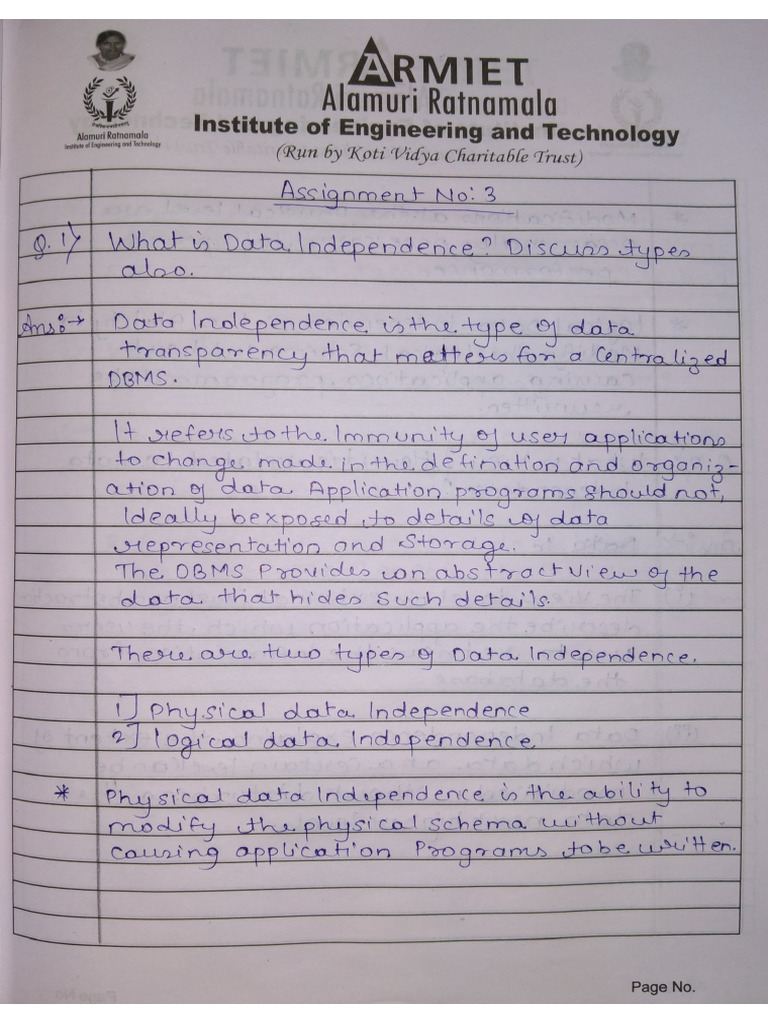 ARMIET
Alamuri Ratnamala
Institute of Engineering and Technology
(Run by Koti Vidya Charitable Trust)
Alamuri Ratnamala
Institute of Engineering and Technology
Assignment No: 3
Q.1) What is Data Independence? Discuss types
also.
Ans:→ Data Independence is the type of data
transparency that matters for a centralized
DBMS.
It refers to the Immunity of user applications
to change made in the defination and organiz-
ation of data Application programs should not,
Ideally be exposed to details of data
representation and storage.
The DBMS Provides an abstract view of the
data that hides such details.
There are two types of Data Independence.
1] Physical data Independence
2] logical data Independence
* Physical data Independence is the ability to
modify the physical schema without
causing application Programs to be written.
Page No.